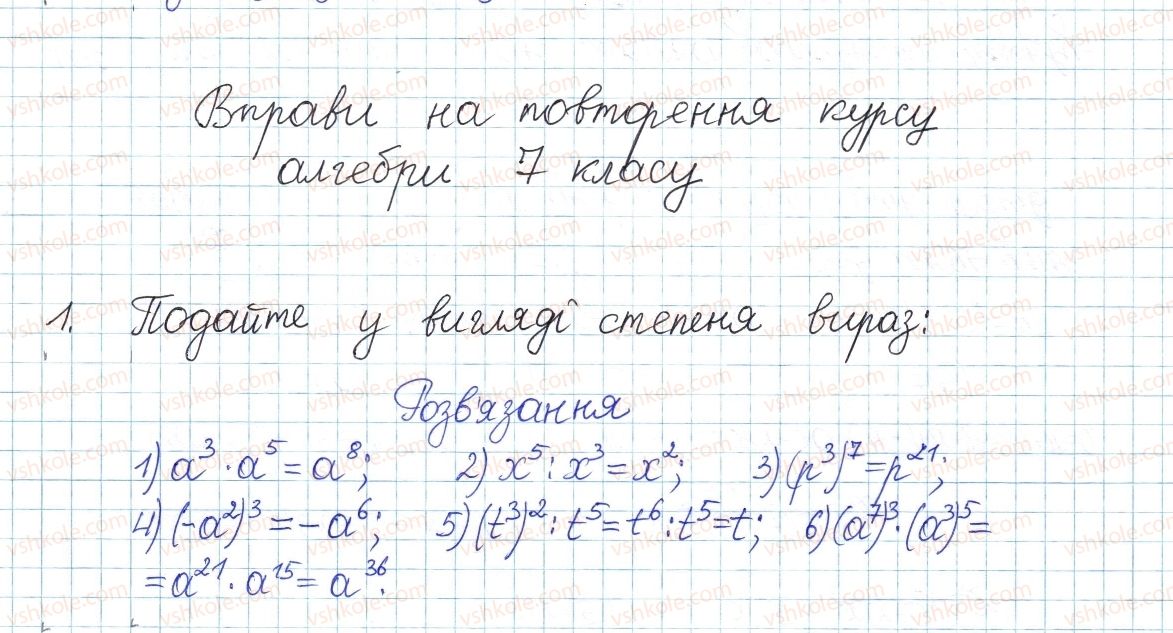 Вправи на повторення курсу
алгебри 7 класу
1. Подайте у вигляді степеня вираз:
Розв'язання
1) a³ · a⁵ = a⁸; 2) x⁵ : x³ = x²; 3) (p³)⁷ = p²¹;
4) (-a²)³ = -a⁶; 5) (t³)² : t⁵ = t⁶ : t⁵ = t; 6) (a⁷)³ · (a³)⁵ =
= a²¹ · a¹⁵ = a³⁶.